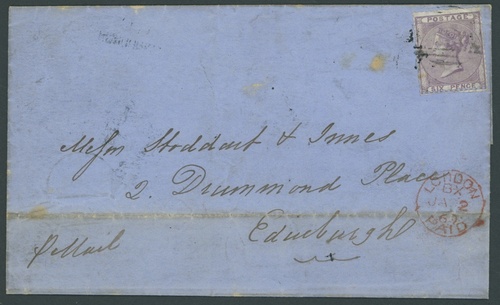 POSTAGE
SIX PENCE
Messrs Stoddart & Innes
2. Drummond Place
Edinburgh
p Mail
LONDON
PAID